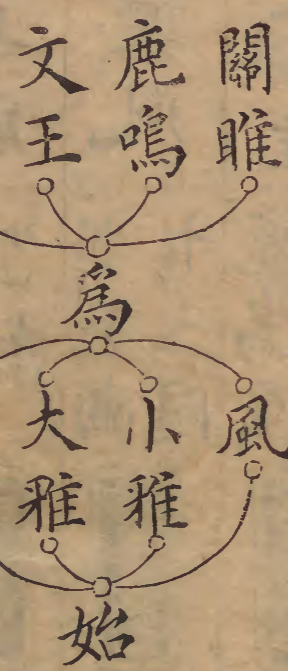 關雎
鹿鳴
文王
爲
風
小雅
大雅
始